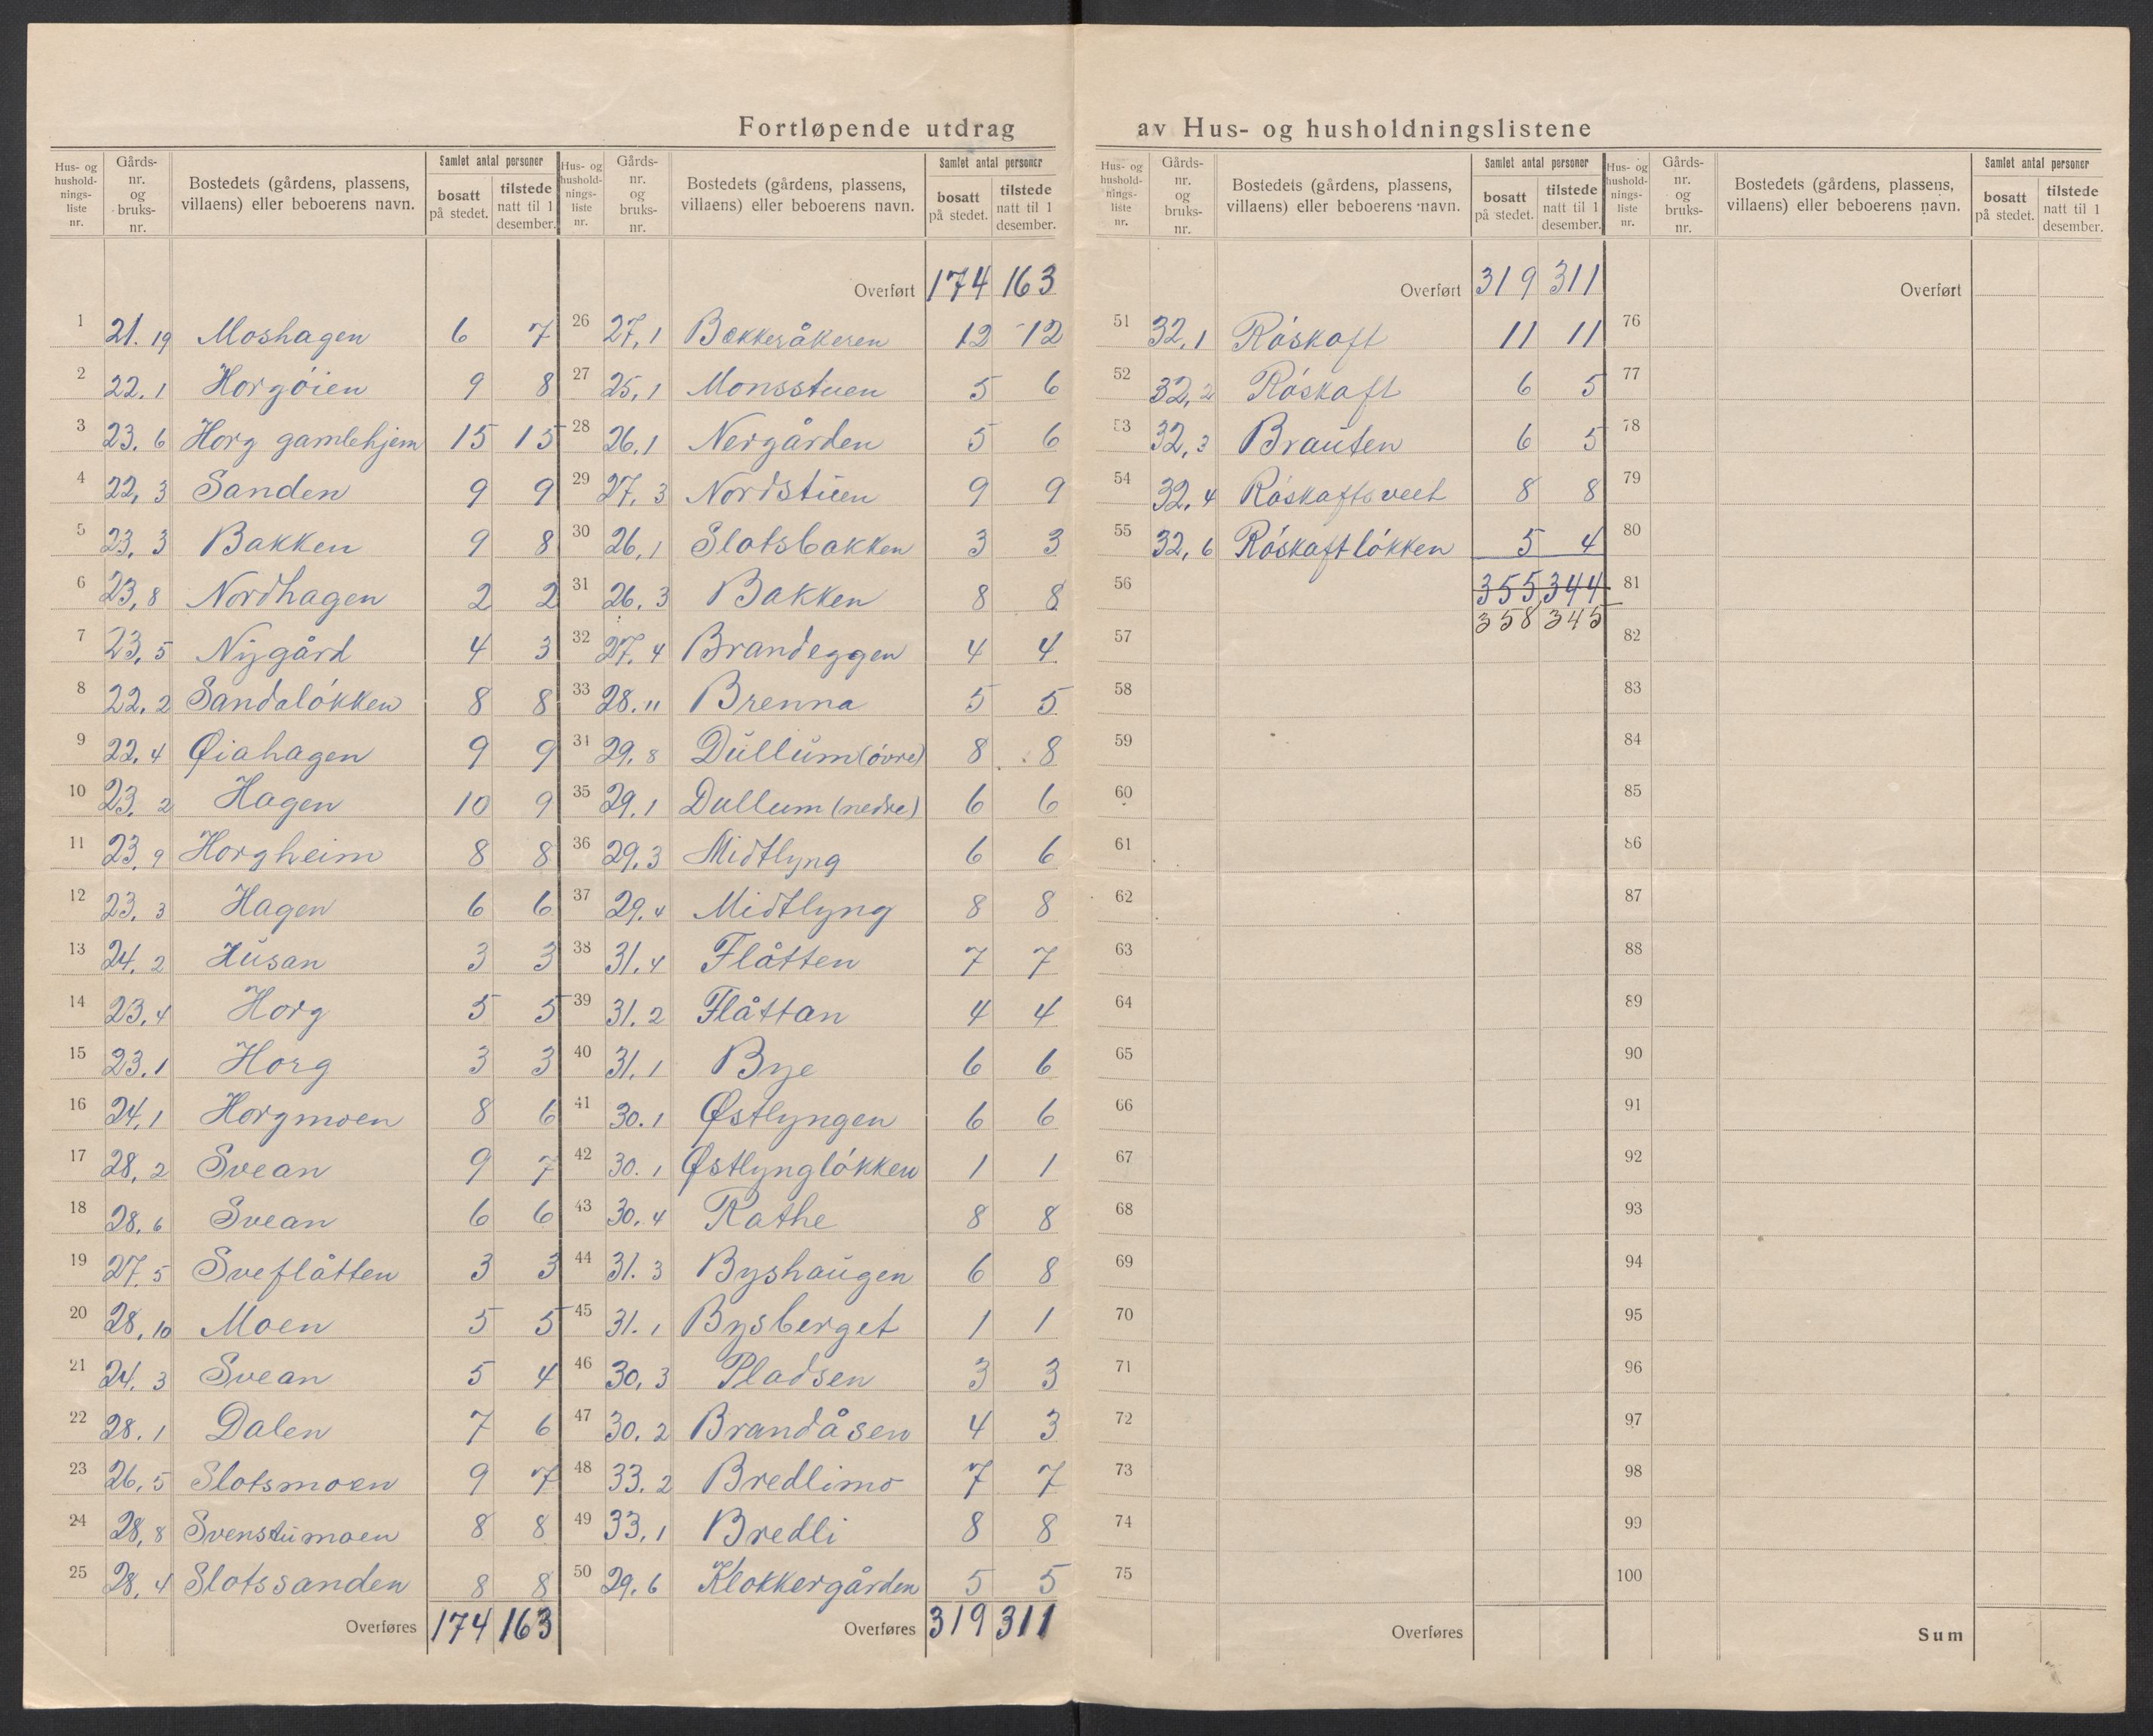 Fortløpende utdrag av Hus- og husholdningslistene
Hus- og husholdnings-liste nr. | Gårds-nr. og bruks-nr. | Bostedets (gårdens, plassens, villaens) eller beboerens navn. | Samlet antal personer | bosatt på stedet. | tilstede natt til 1 desember.
1 21.19 Moshagen 6 7
2 22.1 Horgöien 9 8
3 23.6 Horg gamlehjem 15 15
4 22,3 Sanden 9 9
5 23.3 Bakken 9 8
6 23,8 Nordhagen 2 2
7 23,5 Nygård 4 3
8 22.2 Sandalökken 8 8
9 22.4 Øiahagen 9 9
10 23.2 Hagen 10 9
11 23,9 Horgheim 8 8
12 23.3 Hagen 6 6
13 24.2 Husan 3 3
14 23.4 Horg 5 5
15 23.1 Horg 3 3
16 24,1 Horgmoen 8 6
17 28,2 Svean 9 7
18 28.6 Svean 6 6
19 27.5 Sveflåtten 3 3
20 28,10 Moen 5 5
21 24.3 Svean 5 4
22 28.1 Dalen 7 6
23 26,5 Slotsmoen 9 7
24 28,8 Svenstumoen 8 8
25 28,4 Slotssanden 8 8
Overføres 174 163
Hus- og husholdnings-liste nr. | Gårds-nr. og bruks-nr. | Bostedets (gårdens, plassens, villaens) eller beboerens navn. | Samlet antal personer | bosatt på stedet. | tilstede natt til 1 desember.
Overført 174 163
26 27,1 Bekkeråkeren 12 12
27 25,1 Monsstuen 5 6
28 26,1 Nergården 5 6
29 27,3 Nordstuen 9 9
30 26,1 Slotsbakken 3 3
31 26,3 Bakken 8 8
32 27.4 Brandeggen 4 4
33 28." Brenna 5 5
34 29.8 Dullum (övre) 8 8
35 29.1 Dullum (nedre) 6 6
36 29.3 Midtlyng 6 6
37 29.4 Midtlyng 8 8
38 31.4 Flåtten 7 7
39 31.2 Flåttan 4 4
40 31.1 Bye 6 6
41 30.1 Østlyngen 6 6
42 30.1 Østlynglökken 1 1
43 30.4 Rathe 8 8
44 31.3 Byshaugen 6 8
45 31.1 Bysberget 1 1
46 30,3 Pladsen 3 3
47 30.2 Brandåsen 4 3
48 33.2 Bredlimo 7 7
49 33,1 Bredli 8 8
50 29.6 Klokkergården 5 5
Overføres 319 311
Hus- og husholdnings-liste nr. | Gårds-nr. og bruks-nr. | Bostedets (gårdens, plassens, villaens) eller beboerens navn. | Samlet antal personer | bosatt på stedet. | tilstede natt til 1 desember.
Overført 319 311
51 32,1 Röskaft 11 11
52 32,2 Röskaft 6 5
53 32,3 Brauten 6 5
54 32,4 Röskaftsveet 8 8
55 32,6 Röskaftlökken 5 4
56 355 344
358 345
57
58
59
60
61
62
63
64
65
66
67
68
69
70
71
72
73
74
75
Overføres
Hus- og husholdnings-liste nr. | Gårds-nr. og bruks-nr. | Bostedets (gårdens, plassens, villaens) eller beboerens navn. | Samlet antal personer | bosatt på stedet. | tilstede natt til 1 desember.
Overført
76
77
78
79
80
81
82
83
84
85
86
87
88
89
90
91
92
93
94
95
96
97
98
99
100
Sum